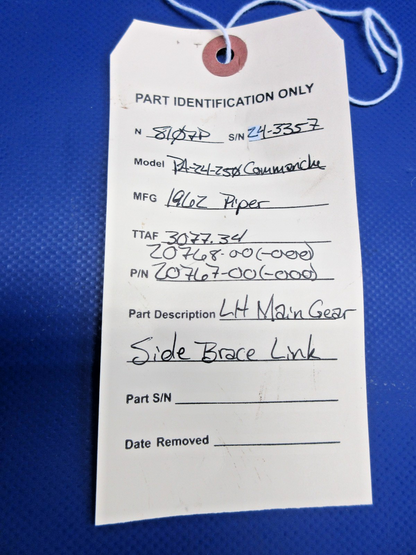 PART IDENTIFICATION ONLY
N 8107P S/N 24-3357
Model PA-24-250 Commanche
MFG 1962 Piper
TTAF 3077.34
20768-00(-000)
P/N 20767-00(-000)
Part Description LH Main Gear
Side Brace Link
Part S/N
Date Removed